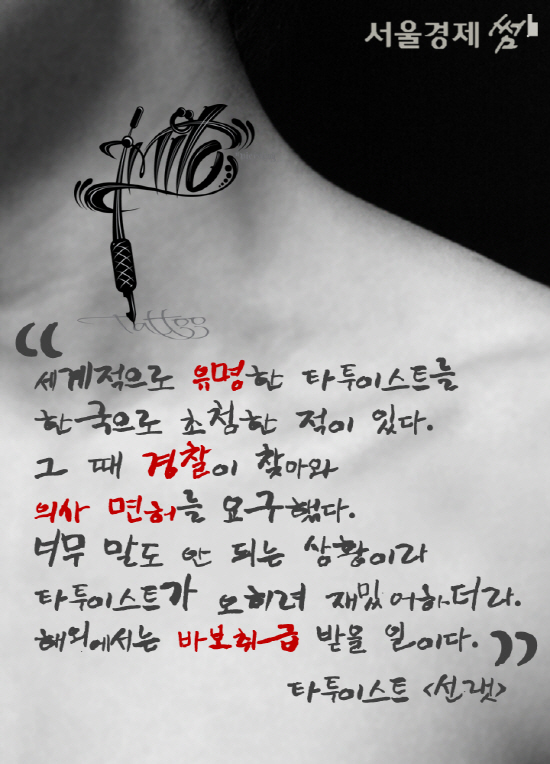 서울경제 썸
Milo
Tattoo
“
세계적으로 유명한 타투이스트를
한국으로 초청한 적이 있다.
그 때 경찰이 찾아와
의사 면허를 요구했다.
너무 말도 안 되는 상황이라
타투이스트가 오히려 재밌어하더라.
해외에서는 바보취급 받을 일이다.”
타투이스트 <선랫>